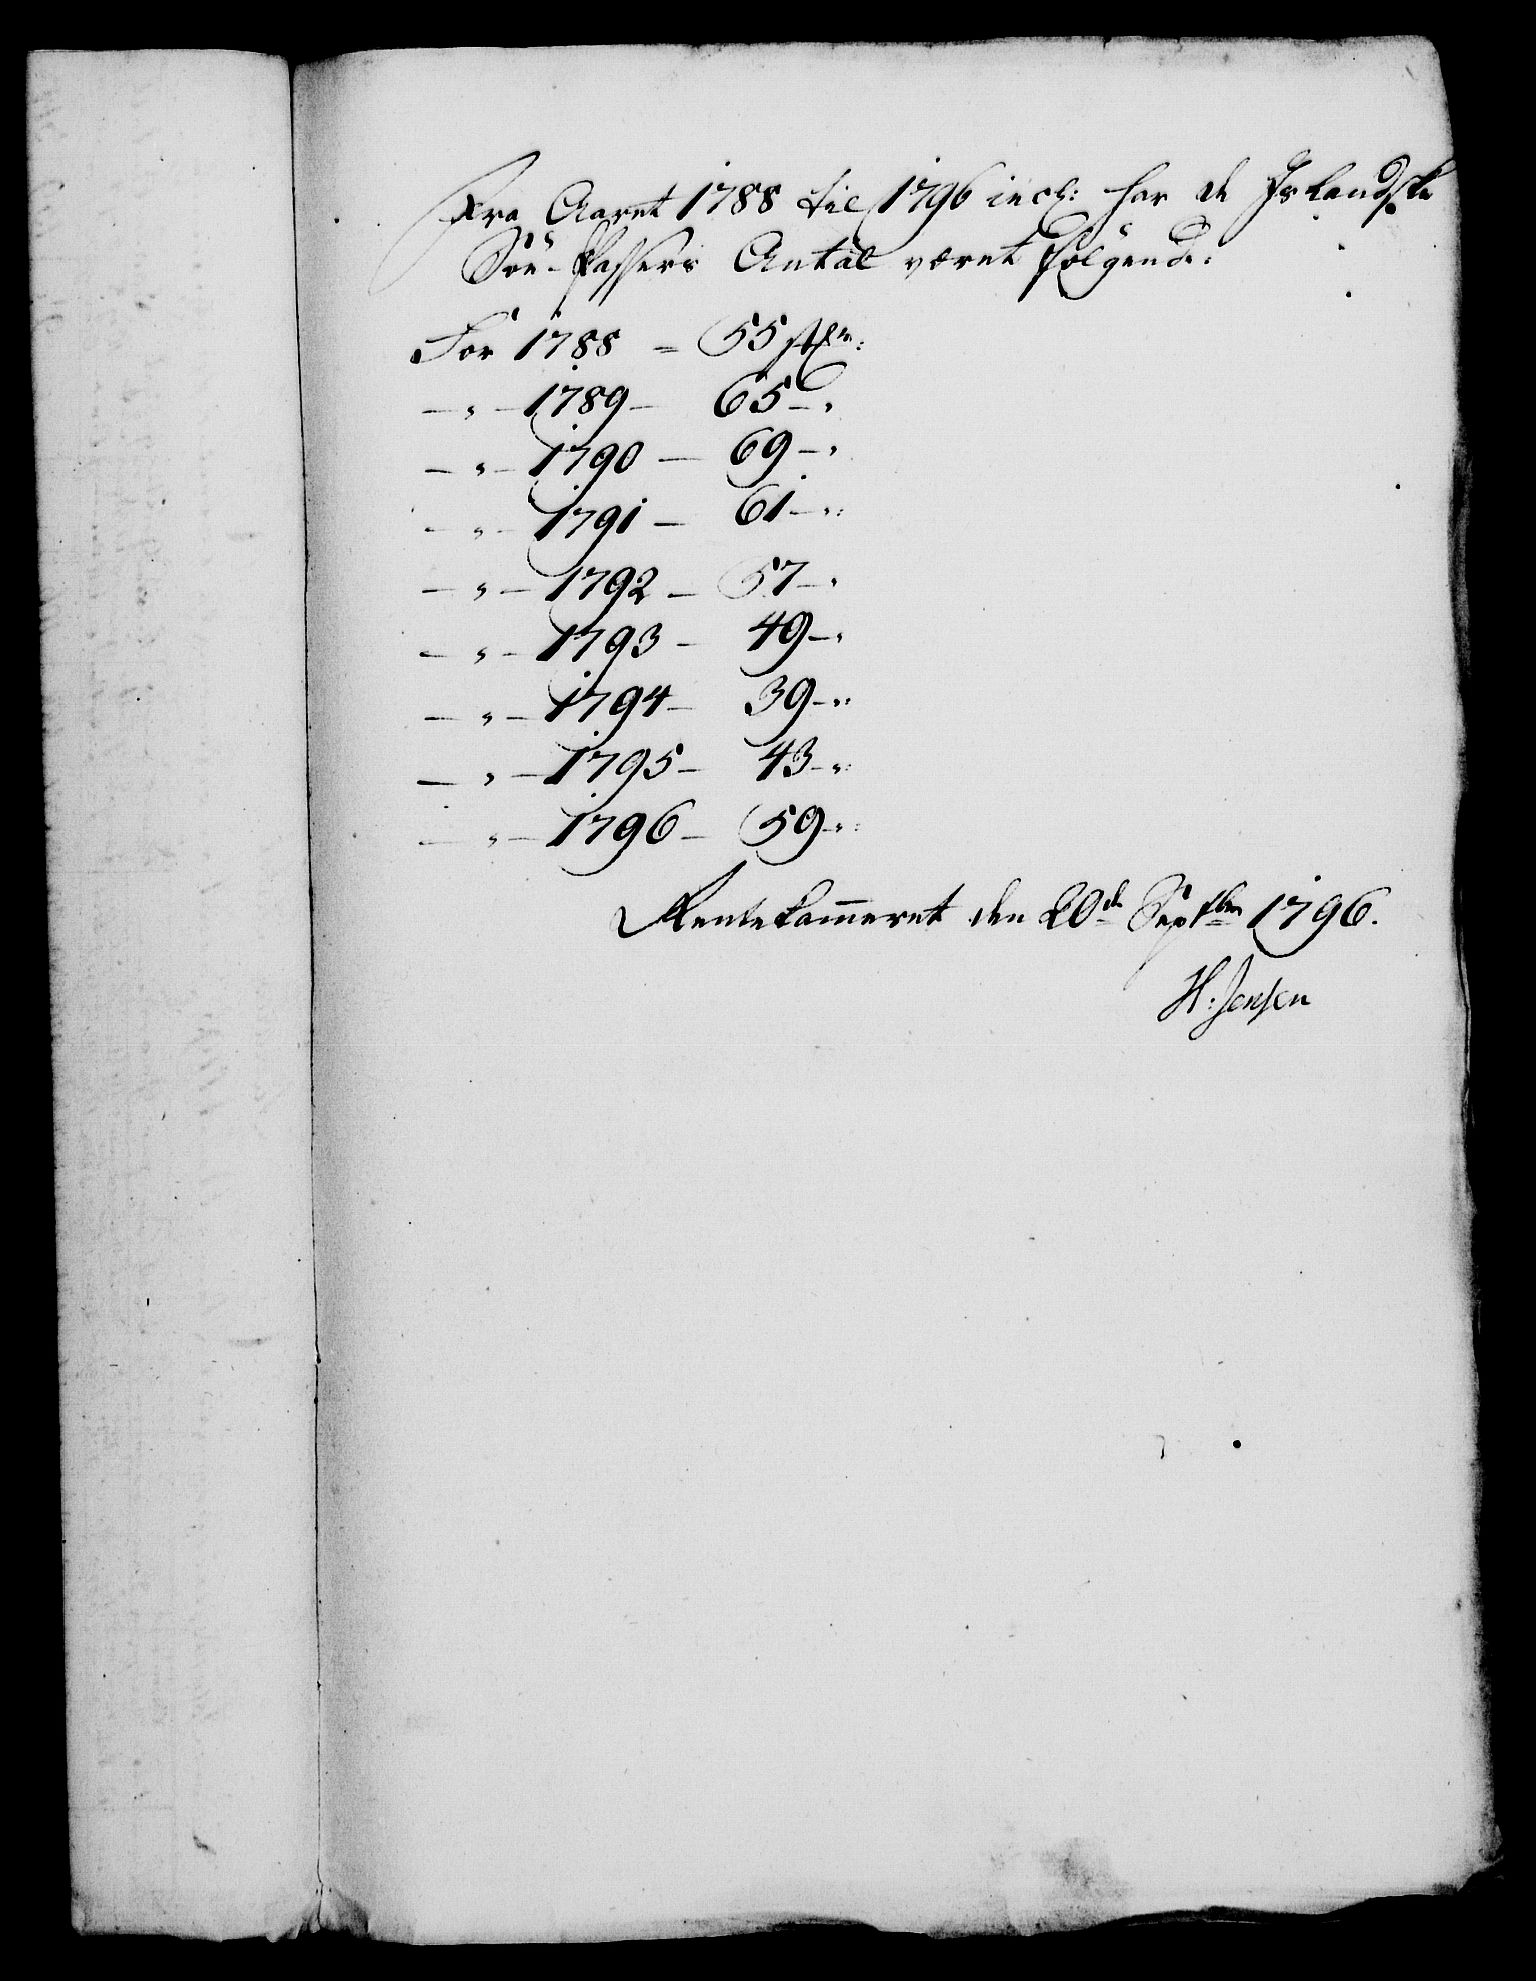 Fra Aaret 1788 til 1796 incl: har de Islandske
Söe-Passers Antal været følgende:
For 1788 = 55 stkr:
— " — 1789 — 65 — "
— " — 1790 — 69 — "
— " — 1791 — 61 — "
— " — 1792 — 57 — "
— " — 1793 — 49 — "
— " — 1794 — 39 — "
— " — 1795 — 43 — "
— " — 1796 — 59 — "
Rentekam̅eret den 20de Septbr 1796.
H: Jensen